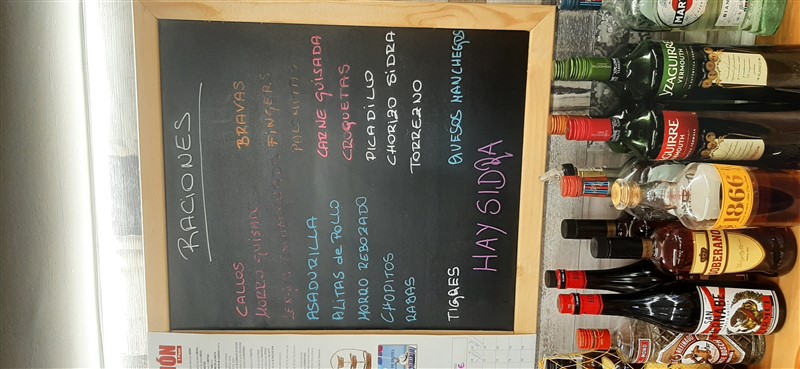 RACIONES
CALLOS
MORRO GUISADO
ASADURILLA
ALITAS de POLLO
MORRO REBOZADO
CHOPITOS
RABAS
TIGRES
BRAVAS
FINGERS
CARNE GUISADA
CROQUETAS
PICADILLO
CHORIZO SIDRA
TORREZNO
QUESOS MANCHEGOS
HAY SIDRA
SAN BERNABE
SOBERANO
1866
YZAGUIRRE
VERMOUTH
MARTINI